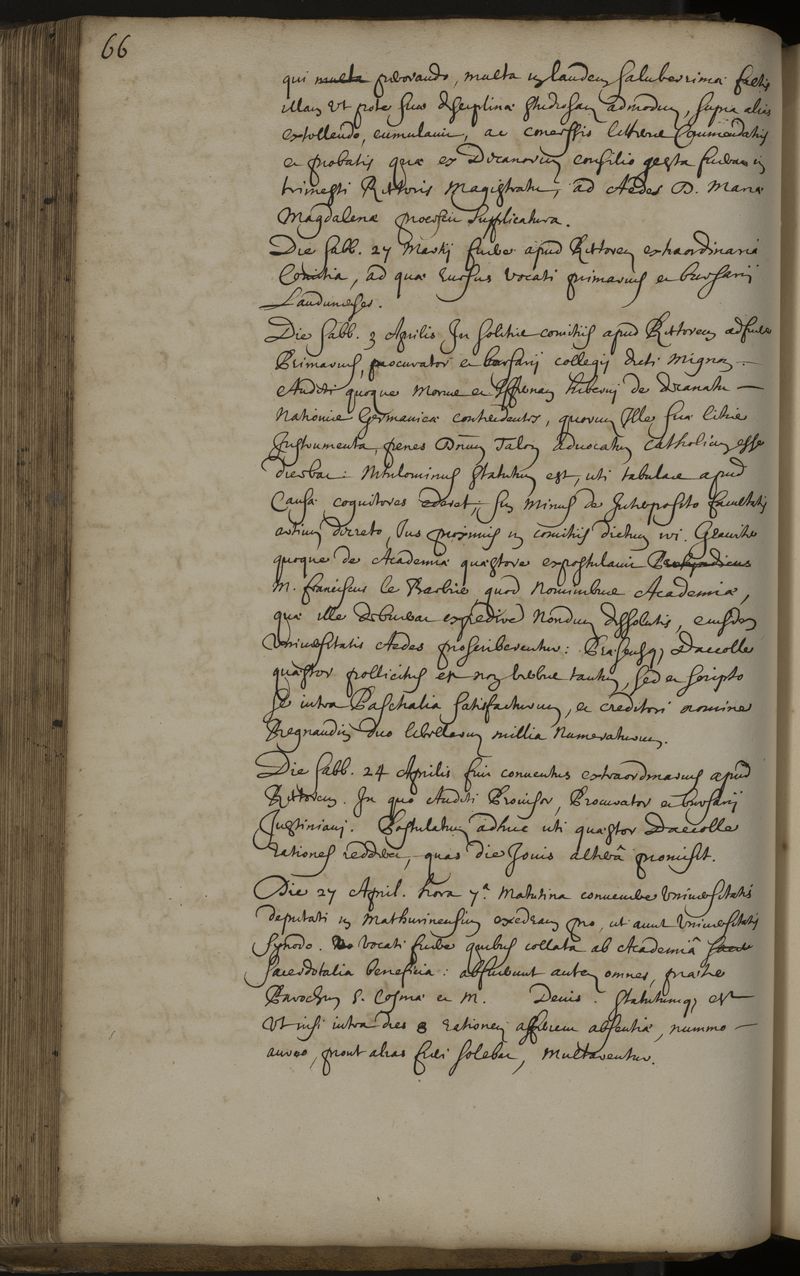 66
qui multa perorando, multa in laudem saluberrimae facultatis
illam ut pote suae disciplinae studiosam admodum, supra alias
extollendo, cumulavit, ac concessis litteris Commendatitiis
et probatis quae ex Decanorum consilio gesta fuerant in
trimestri Rectoris Magistratu, ad Aedes D. Mariae
Magdalenae processit supplicatura.
Die Sabb. 27 Martij fuere apud Rectorem extraordinaria
Comitia, ad quae rursus vocati primarius et bursarij
Laudunenses.
Die Sabb. 3 Aprilis In solitis comitiis apud Rectorem adfuere
Primarius, procurator et bursarij collegij dicti Mignon
Auditi quoque Morus et hiberni de decanatu
Nationis Germanicae contendentes, quorum Ille sua litis
Instrumenta, penes Dnum Talon advocatum catholicum esse
dicebat: Nihilominus statutum est, uti tabulae apud
Causae cognitores ederet, sin minus de Interposito facultatis
artium decreto, Jus proximis in comitiis dictum iri. Graviter
quoque de Academiae quaestore expostulavit
M. franciscus le Barbier, quod Nominibus Academiae,
quae ille debebat expedire Nondum dissolutis, eiusdem
Universitatis Aedes proscriberentur: Praesensq; Dacolle
quaestor pollicitus est non verbis tantum, sed et scripto
se intra Paschalia satisfacturum, et creditori nomine
Regnaudin duo librarum millia Numeraturum.
Die Sabb. 24 Aprilis fuit conventus extraordinarius apud
Rectorem. In quo Auditi Provisor, Procurator et bursarij
Justiniani. Postulatum adhuc uti quaestor Dacolle
rationes redderet, quas die Jovis alterâ promisit.
Die 27 April. hora 7.a Matutina convenere Universitatis
deputati in Mathurinensium exedram pro, ut aiunt Universitatis
Synodo. Vocati fuere quibus collata ab Academiâ
sacerdotalia beneficia: abfuerunt autem omnes, praeter
Parochum S. Cosmae et M. Denis. Statutumq; est
Ut nisi intra dies 8 rationem afferent absentiae, nummo
aureo, prout alias fieri solebat, Multarentur.